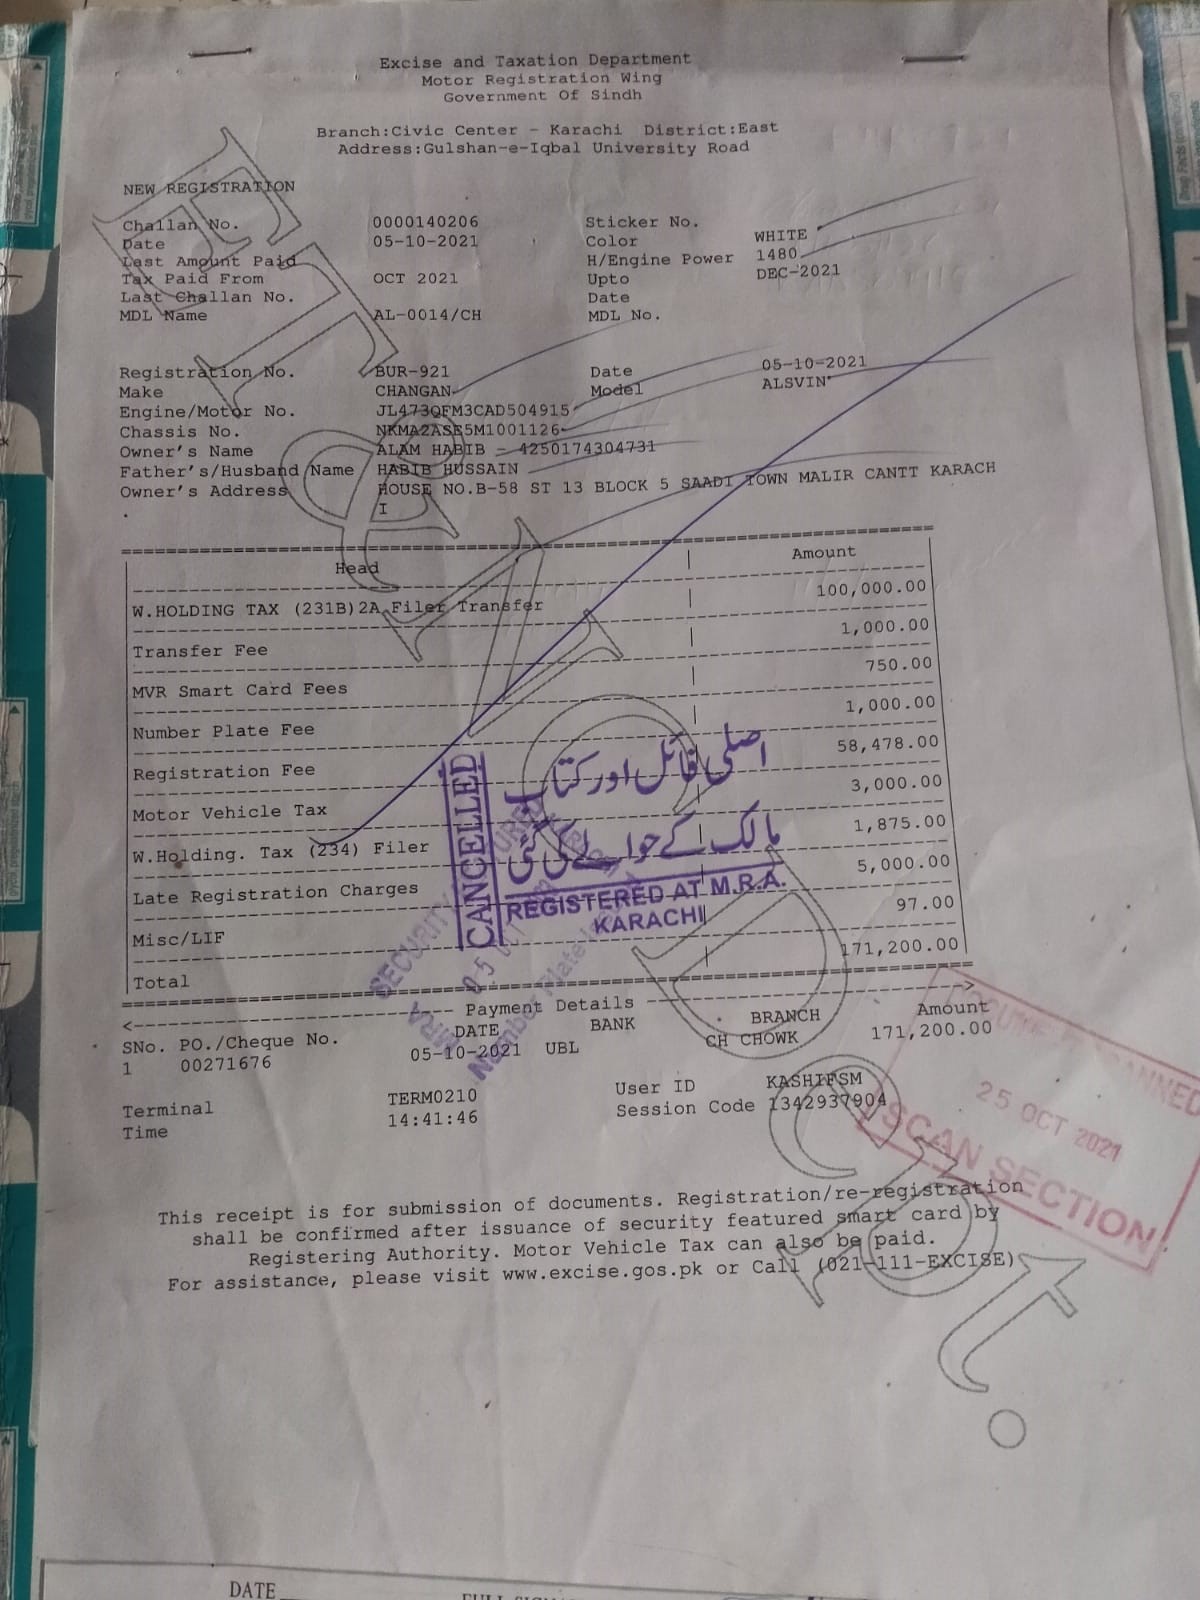 Excise and Taxation Department
Motor Registration Wing
Government Of Sindh
Branch:Civic Center - Karachi District:East
Address:Gulshan-e-Iqbal University Road
NEW REGISTRATION
Challan No. 0000140206 Sticker No.
Date 05-10-2021 Color WHITE
Last Amount Paid H/Engine Power 1480
Tax Paid From OCT 2021 Upto DEC-2021
Last Challan No. Date
MDL Name AL-0014/CH MDL No.
Registration No. BUR-921 Date 05-10-2021
Make CHANGAN Model ALSVIN
Engine/Motor No. JL473QFM3CAD504915
Chassis No. NKMA2ASE5M1001126
Owner's Name ALAM HABIB - 4250174304731
Father's/Husband Name HABIB HUSSAIN
Owner's Address HOUSE NO.B-58 ST 13 BLOCK 5 SAADI TOWN MALIR CANTT KARACH
I
Head Amount
W.HOLDING TAX (231B)2A Filer Transfer 100,000.00
Transfer Fee 1,000.00
MVR Smart Card Fees 750.00
Number Plate Fee 1,000.00
Registration Fee 58,478.00
Motor Vehicle Tax 3,000.00
W.Holding. Tax (234) Filer 1,875.00
Late Registration Charges 5,000.00
Misc/LIF 97.00
Total 171,200.00
CANCELLED
اصلی فائل اور کتاب
مالک کے حوالے کی گئی
REGISTERED AT M.R.A.
KARACHI
SECURITY
MRA
Number Plate
<---- Payment Details ---->
SNo. PO./Cheque No. DATE BANK BRANCH Amount
1 00271676 05-10-2021 UBL CH CHOWK 171,200.00
Terminal TERM0210 User ID KASHIFSM
Time 14:41:46 Session Code 1342937904
25 OCT 2021
SCAN SECTION
This receipt is for submission of documents. Registration/re-registration
shall be confirmed after issuance of security featured smart card by
Registering Authority. Motor Vehicle Tax can also be paid.
For assistance, please visit www.excise.gos.pk or Call (021-111-EXCISE)
DATE